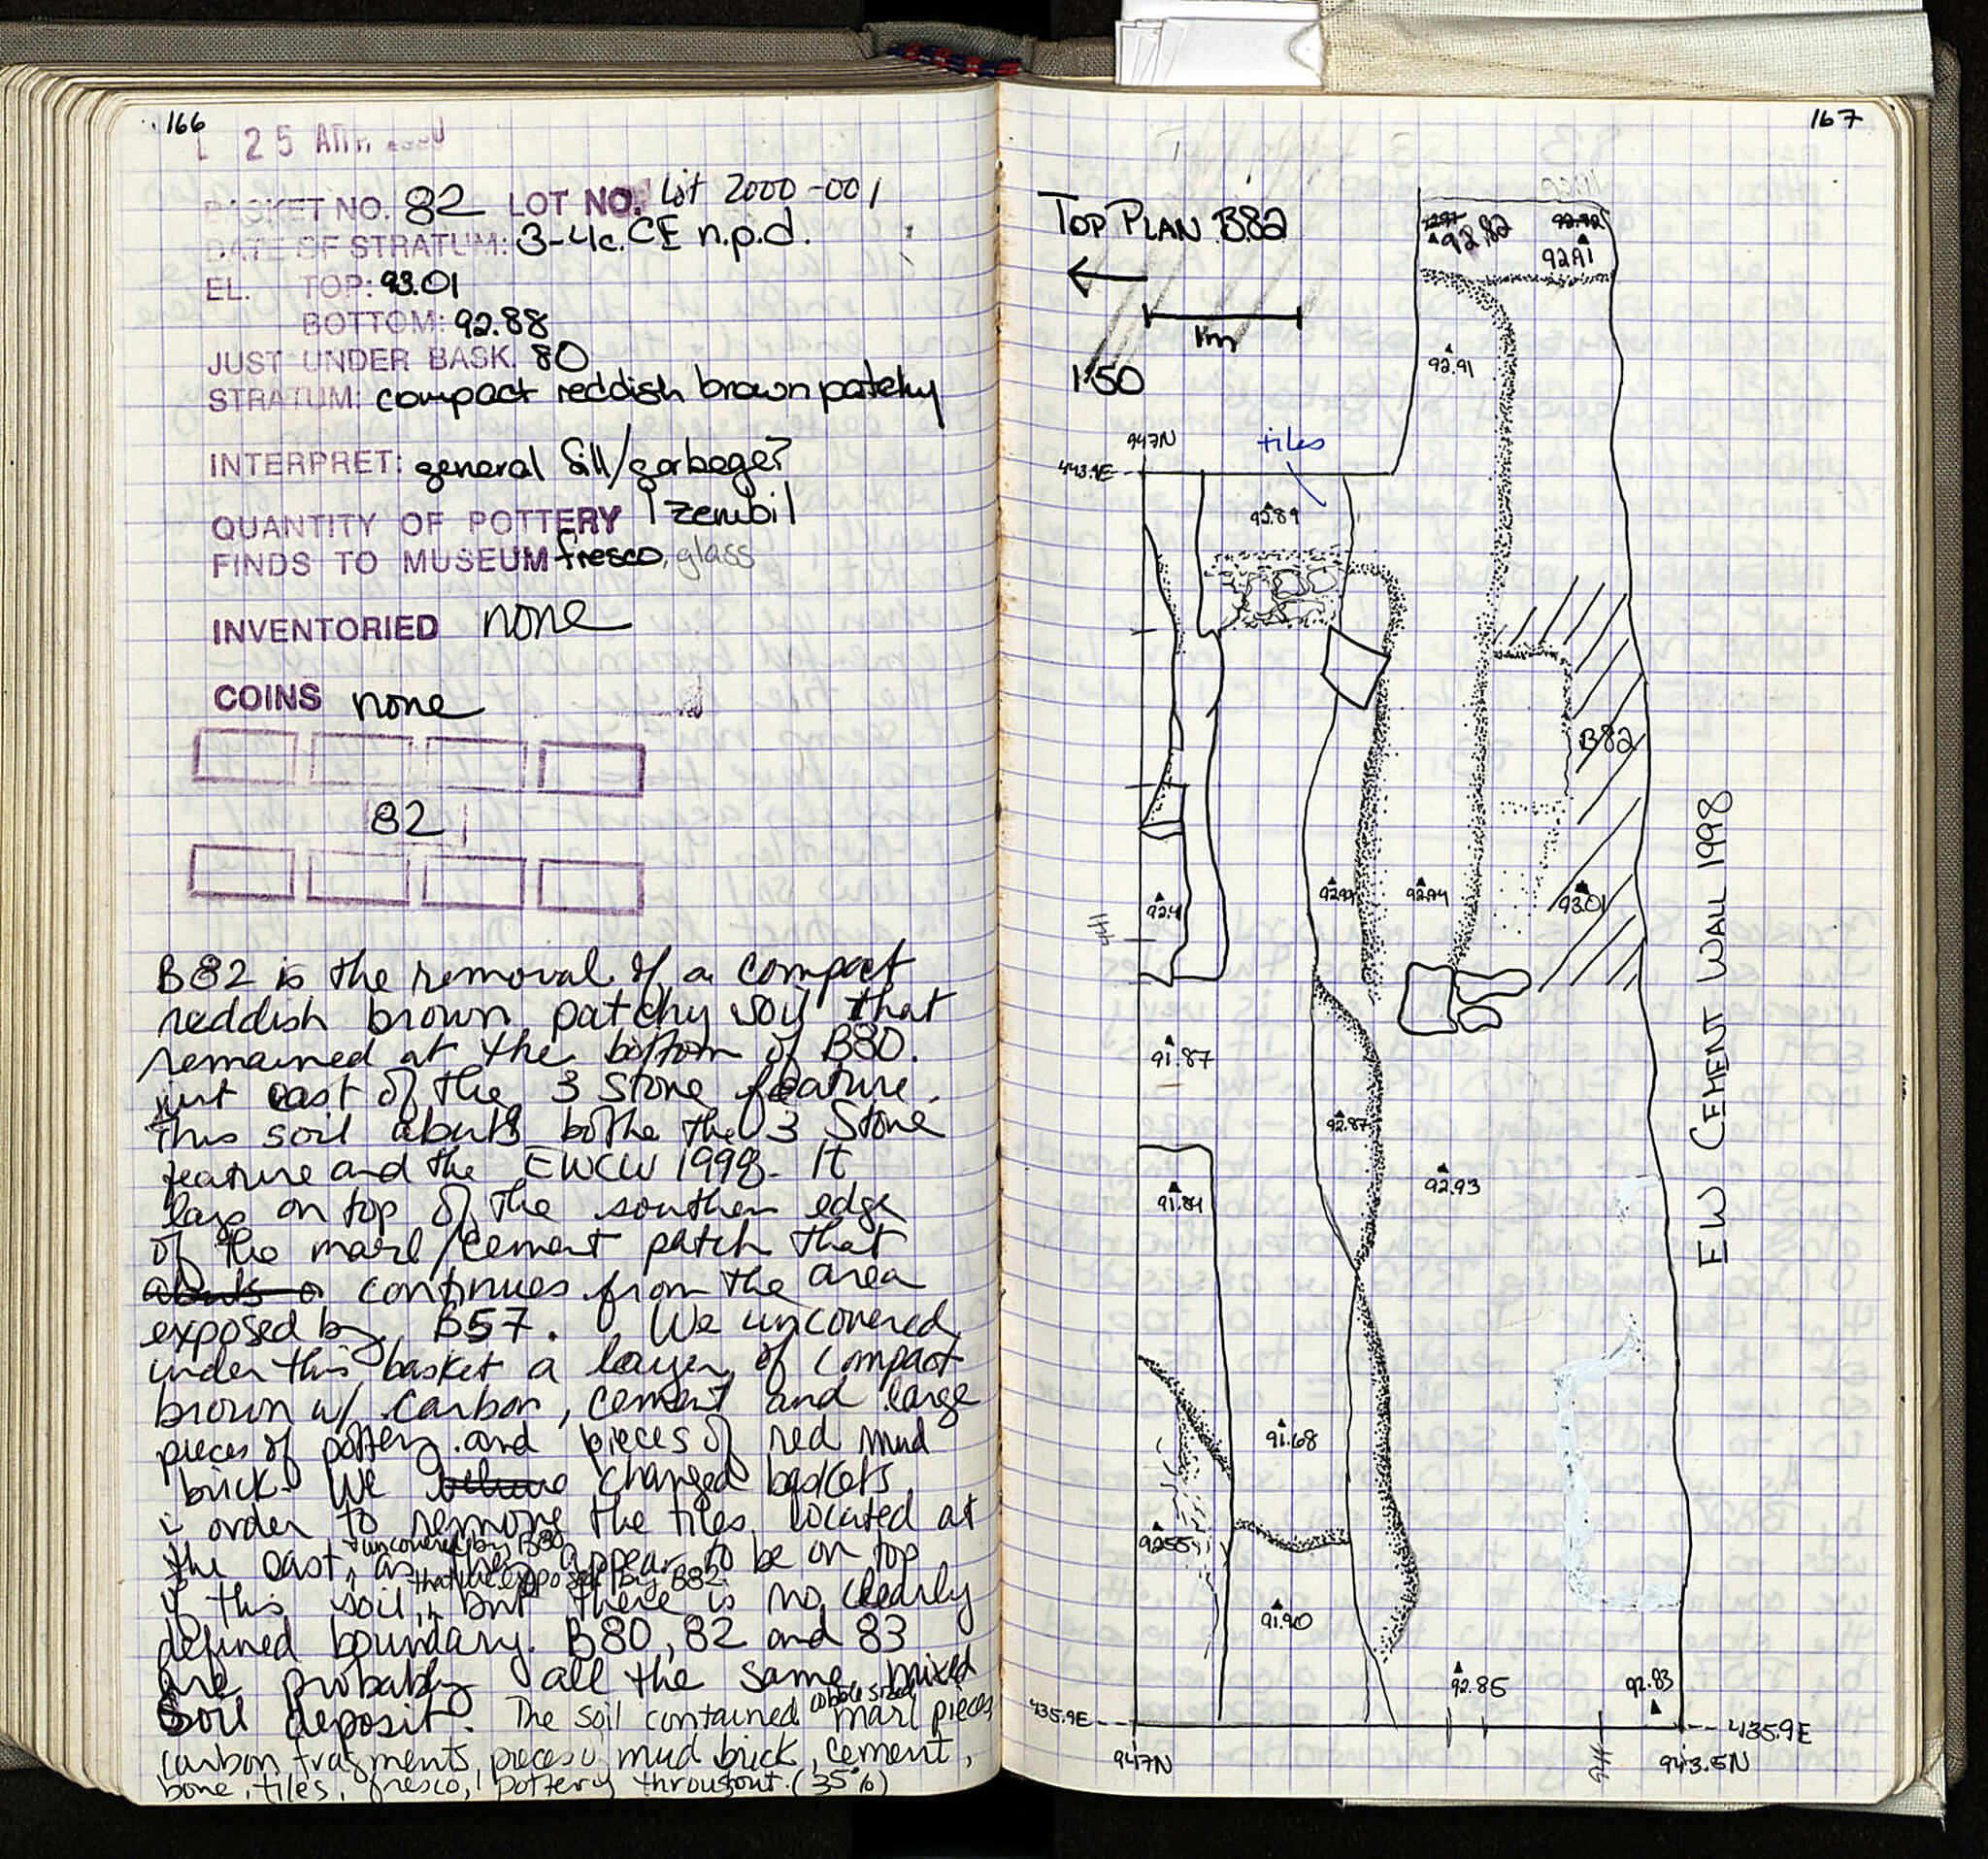 166
25 ΑΠΡ. 2000
BASKET NO. 82 LOT NO. Lot 2000-001
DATE OF STRATUM: 3-4c. CE n.p.d.
EL. TOP: 93.01
BOTTOM: 92.88
JUST UNDER BASK. 80
STRATUM: compact reddish brown patchy
INTERPRET: general fill/garbage?
QUANTITY OF POTTERY 1 zembil
FINDS TO MUSEUM fresco, glass
INVENTORIED none
COINS none
82
B82 is the removal of a compact
reddish brown patchy soil that
remained at the bottom of B80.
just east of the 3 stone feature.
This soil abuts bothe the 3 Stone
feature and the EWCW 1998. It
lays on top of the southern edge
of the marl/cement patch that
continues from the area
exposed by B57. We uncovered
under this basket a layer of compact
brown w/ carbon, cement and large
pieces of pottery and pieces of red mud
brick. We changed baskets
in order to remove the tiles located at
the east, uncovered by B80 as they appear to be on top
of this soil, that we exposed by B82 but there is no clearly
defined boundary. B80, 82 and 83
are probably all the same mixed
Soil deposit. The soil contained cobble sized marl pieces,
carbon fragments, pieces of mud brick, cement,
bone, tiles, fresco, pottery throughout. (35%)
167
TOP PLAN B82
1m
1:50
92.82
92.91
92.91
947N
443.9E
tiles
92.89
B82
92.94
93.01
444
91.87
92.87
91.84
92.93
EW CEMENT WALL 1998
91.68
92.55
91.90
92.85
92.83
435.9E
435.9E
947N
944
943.5N